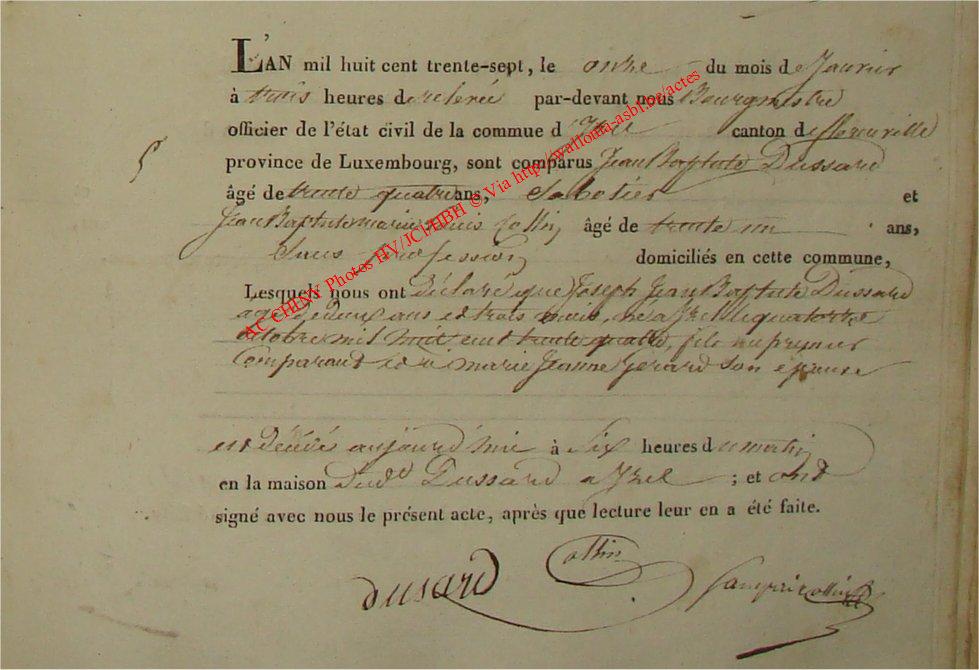 L'AN mil huit cent trente-sept, le onze du mois de Janvier
à trois heures de relevée par-devant nous Bourgmestre
officier de l'état civil de la commue d'Izel canton de florenville
province de Luxembourg, sont comparus Jean Baptiste Dussard
âgé de trente quatre ans, Sabotier et
Jean Baptiste marie Louis Collin, âgé de trente un ans,
Sans profession domiciliés en cette commune,
5
Lesquels nous ont déclaré que Joseph Jean Baptiste Dussard
agé de deux ans et trois mois, né a Izel le quatorze
octobre mil huit cent trente quatre, fils au premier
Comparant et à marie Jeanne Gerard son épouse
est décédé aujourd'hui à Six heures du matin
en la maison dud. Dussard a Izel ; et ont
signé avec nous le présent acte, après que lecture leur en a été faite.
dusard Collin
AC CHINY Photos HV/JCl/HBH © Via http://wallonia-asbl.be/actes